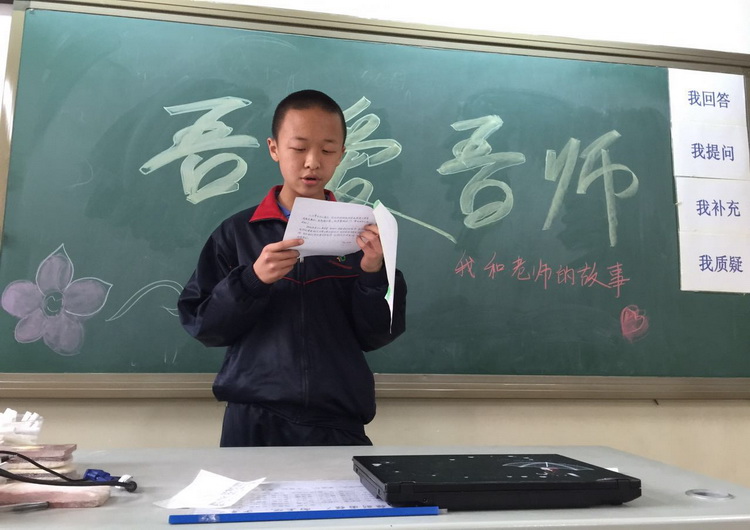 吾爱吾师
我和老师的故事
我回答
我提问
我补充
我质疑